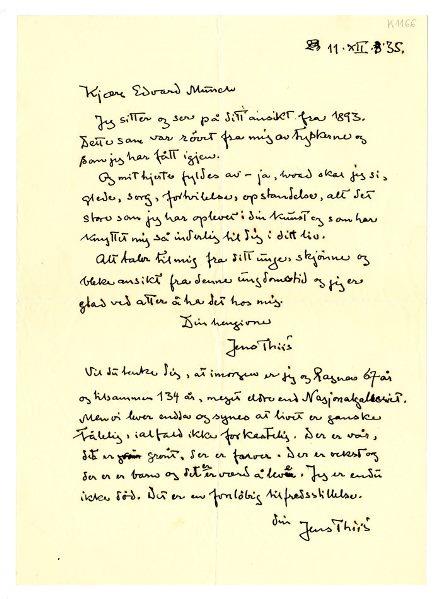 K1166
11. XII 35.
Kjære Edvard Munch
Jeg sitter og ser på ditt ansikt fra 1893.
Dette som var røvet fra mig av tyskerne og
som jeg har fått igjen.
Og mit hjerte fyldes av – ja, hvad skal jeg si,
glede, sorg, fortvilelse, opstandelse, alt det
store som jeg har oplevet i din kunst og som har
knyttet mig så inderlig til dig i ditt liv.
Alt taler til mig fra ditt unge, skjønne og
bleke ansikt fra denne ungdomstid og jeg er
glad ved atter å ha det hos mig.
Din hengivne
Jens Thiis
Vil du tenke dig, at imorgen er jeg og Ragna 67 år
og tilsammen 134 år, meget eldre end Nasjonalgalleriet.
Men vi lever endda og synes at livet er ganske
tålelig, ialfald ikke forkastelig. Der er vår,
det er grønt, der er farver. Der er vekst og
der er barn og det er værd å leve. Jeg er endnu
ikke død. Det er en foreløbig tilfredsstillelse.
din Jens Thiis